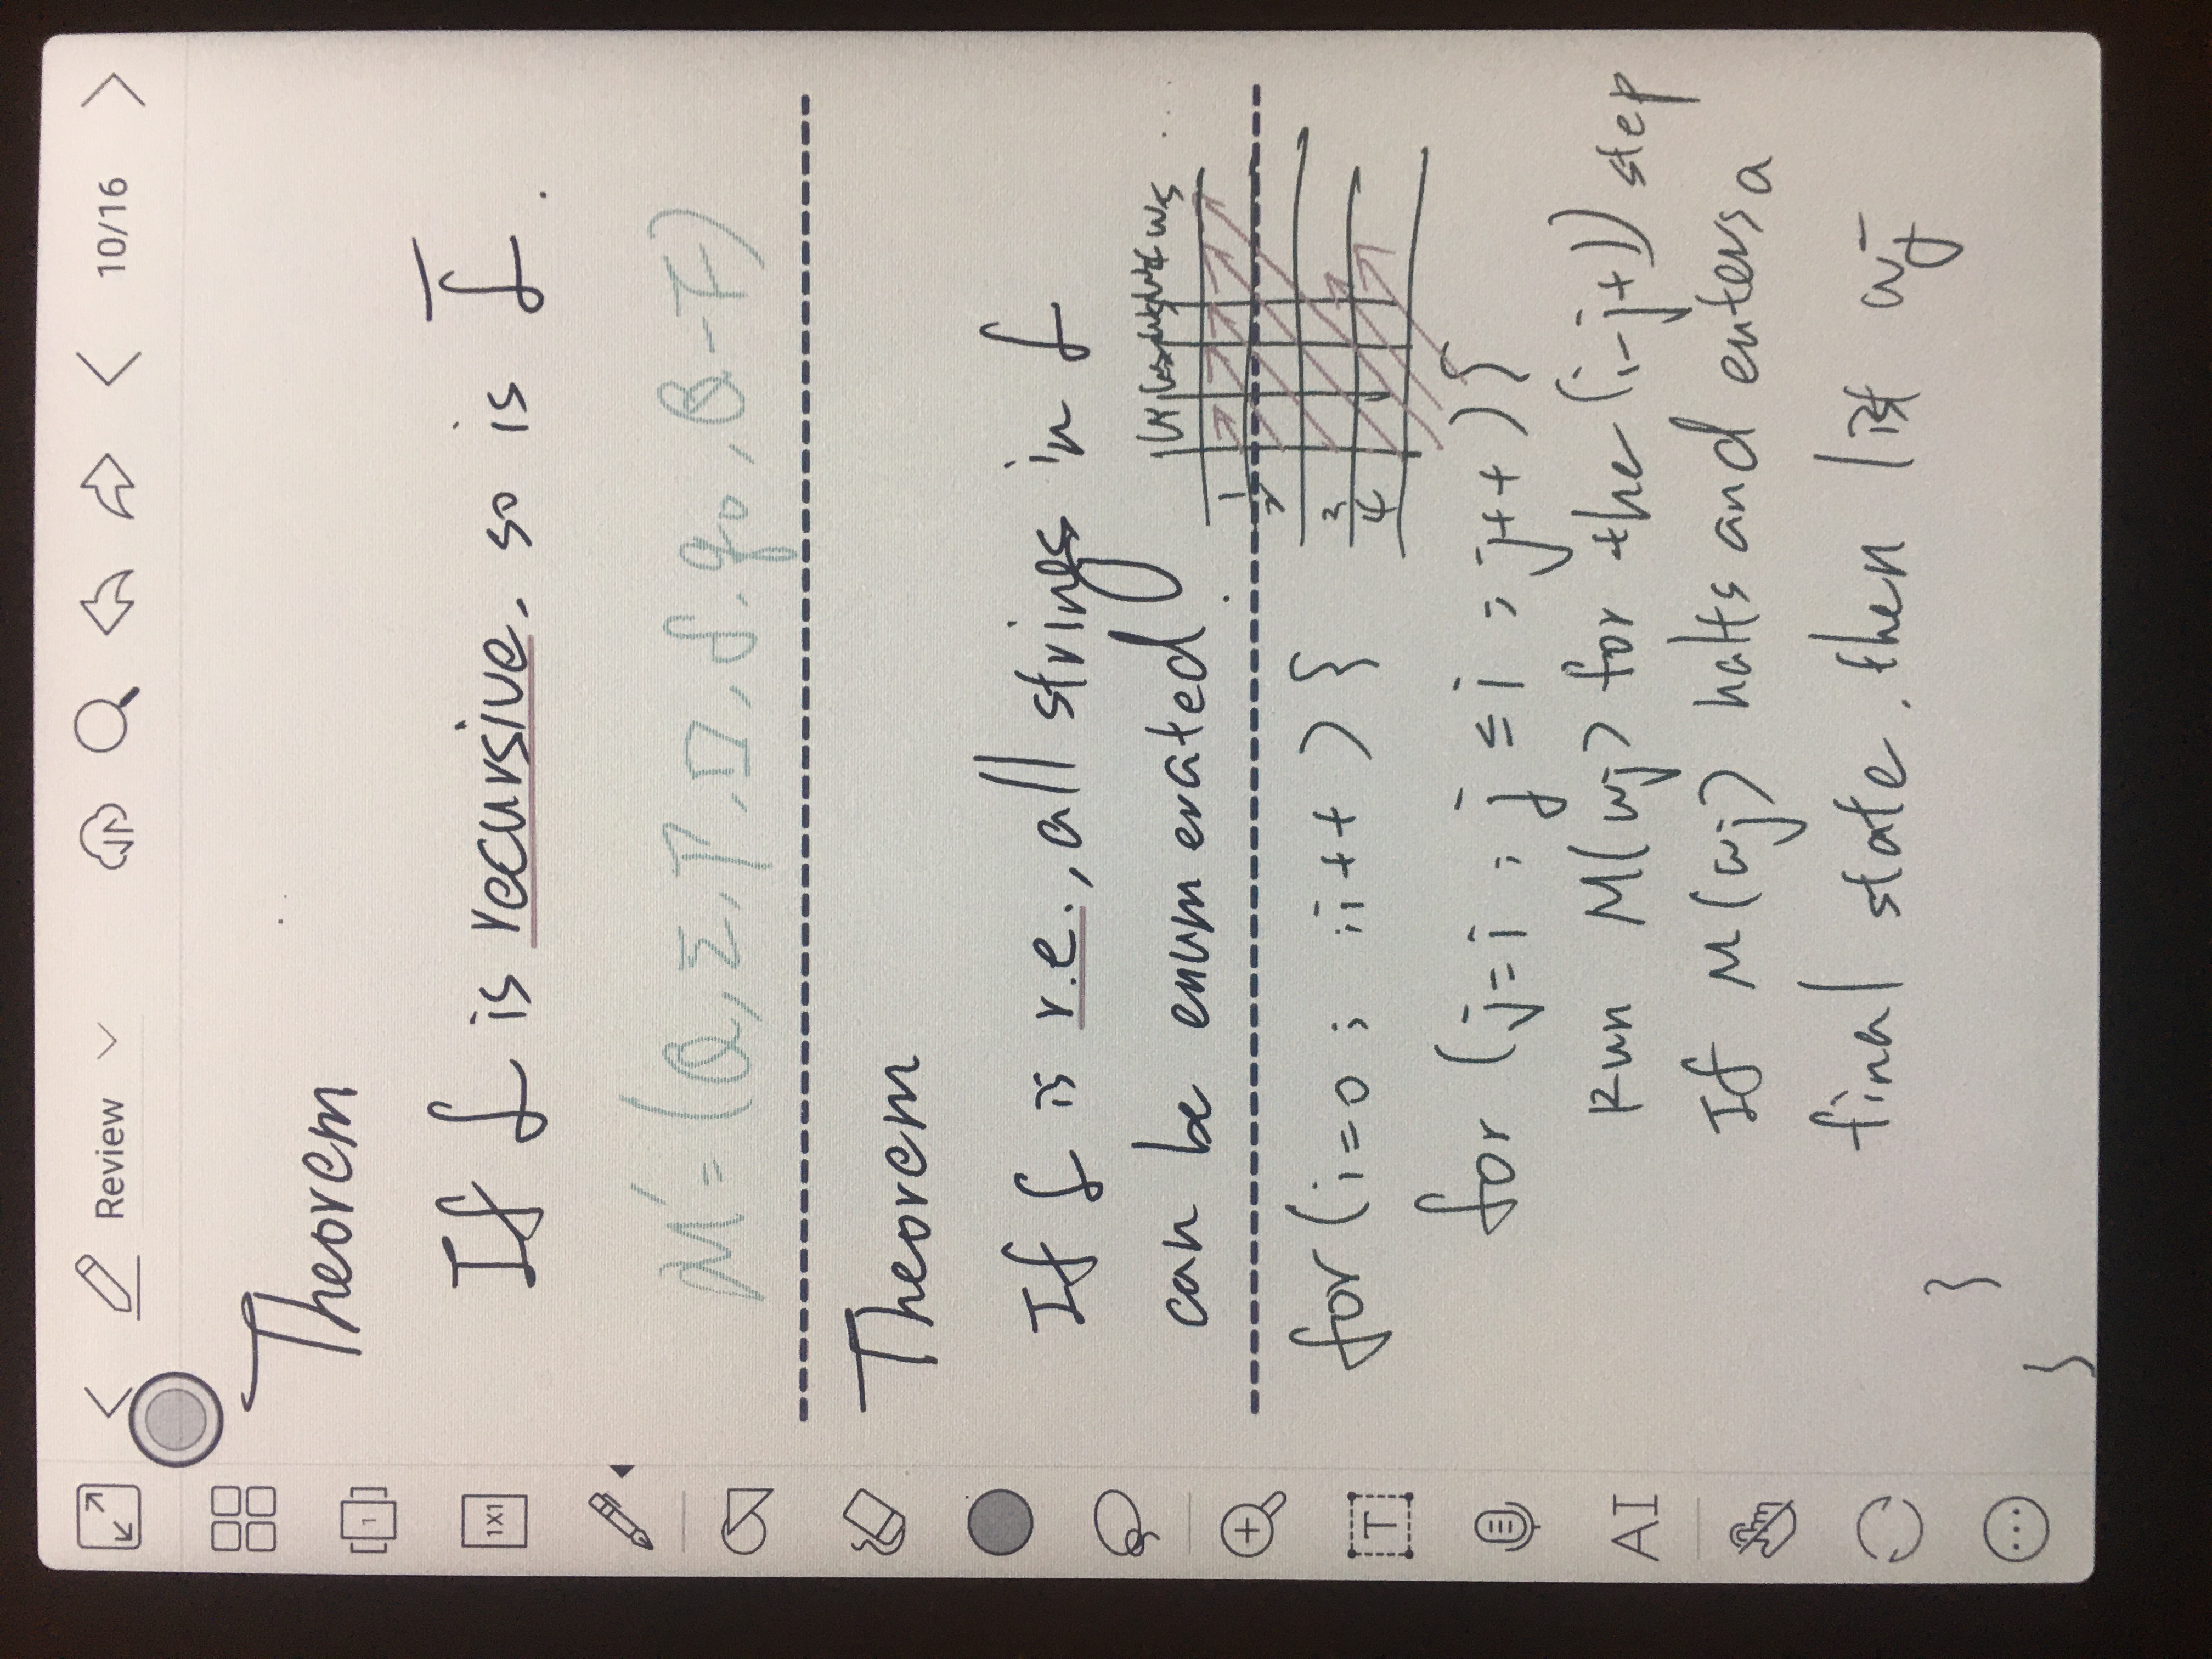 Review
10/16
1
1X1
T
AI
Theorem
If L is recursive. so is L̅.
M' = (Q, Σ, Γ, □, δ, q₀, Q-F)
Theorem
If L is r.e., all strings in L
can be enumerated.
w₁ w₂ w₃ w₄ w₅ ....
1
2
3
4
for (i=0 ; ;i++ ) {
for (j=i ; j ≤ i ; j++ ) {
Run M(wj) for the (i-j+1) step
If M(wj) halts and enters a
final state. then list wj
}
}